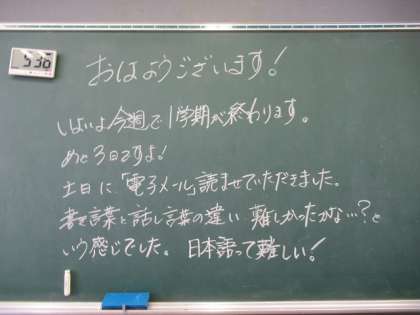 5:30
おはようございます!
いよいよ今週で1学期が終わります。
あと3日ですよ!
土日に「電子メール」読ませていただきました。
書き言葉と話し言葉の違い 難しかったかな…?と
いう感じでした。 日本語って難しい!